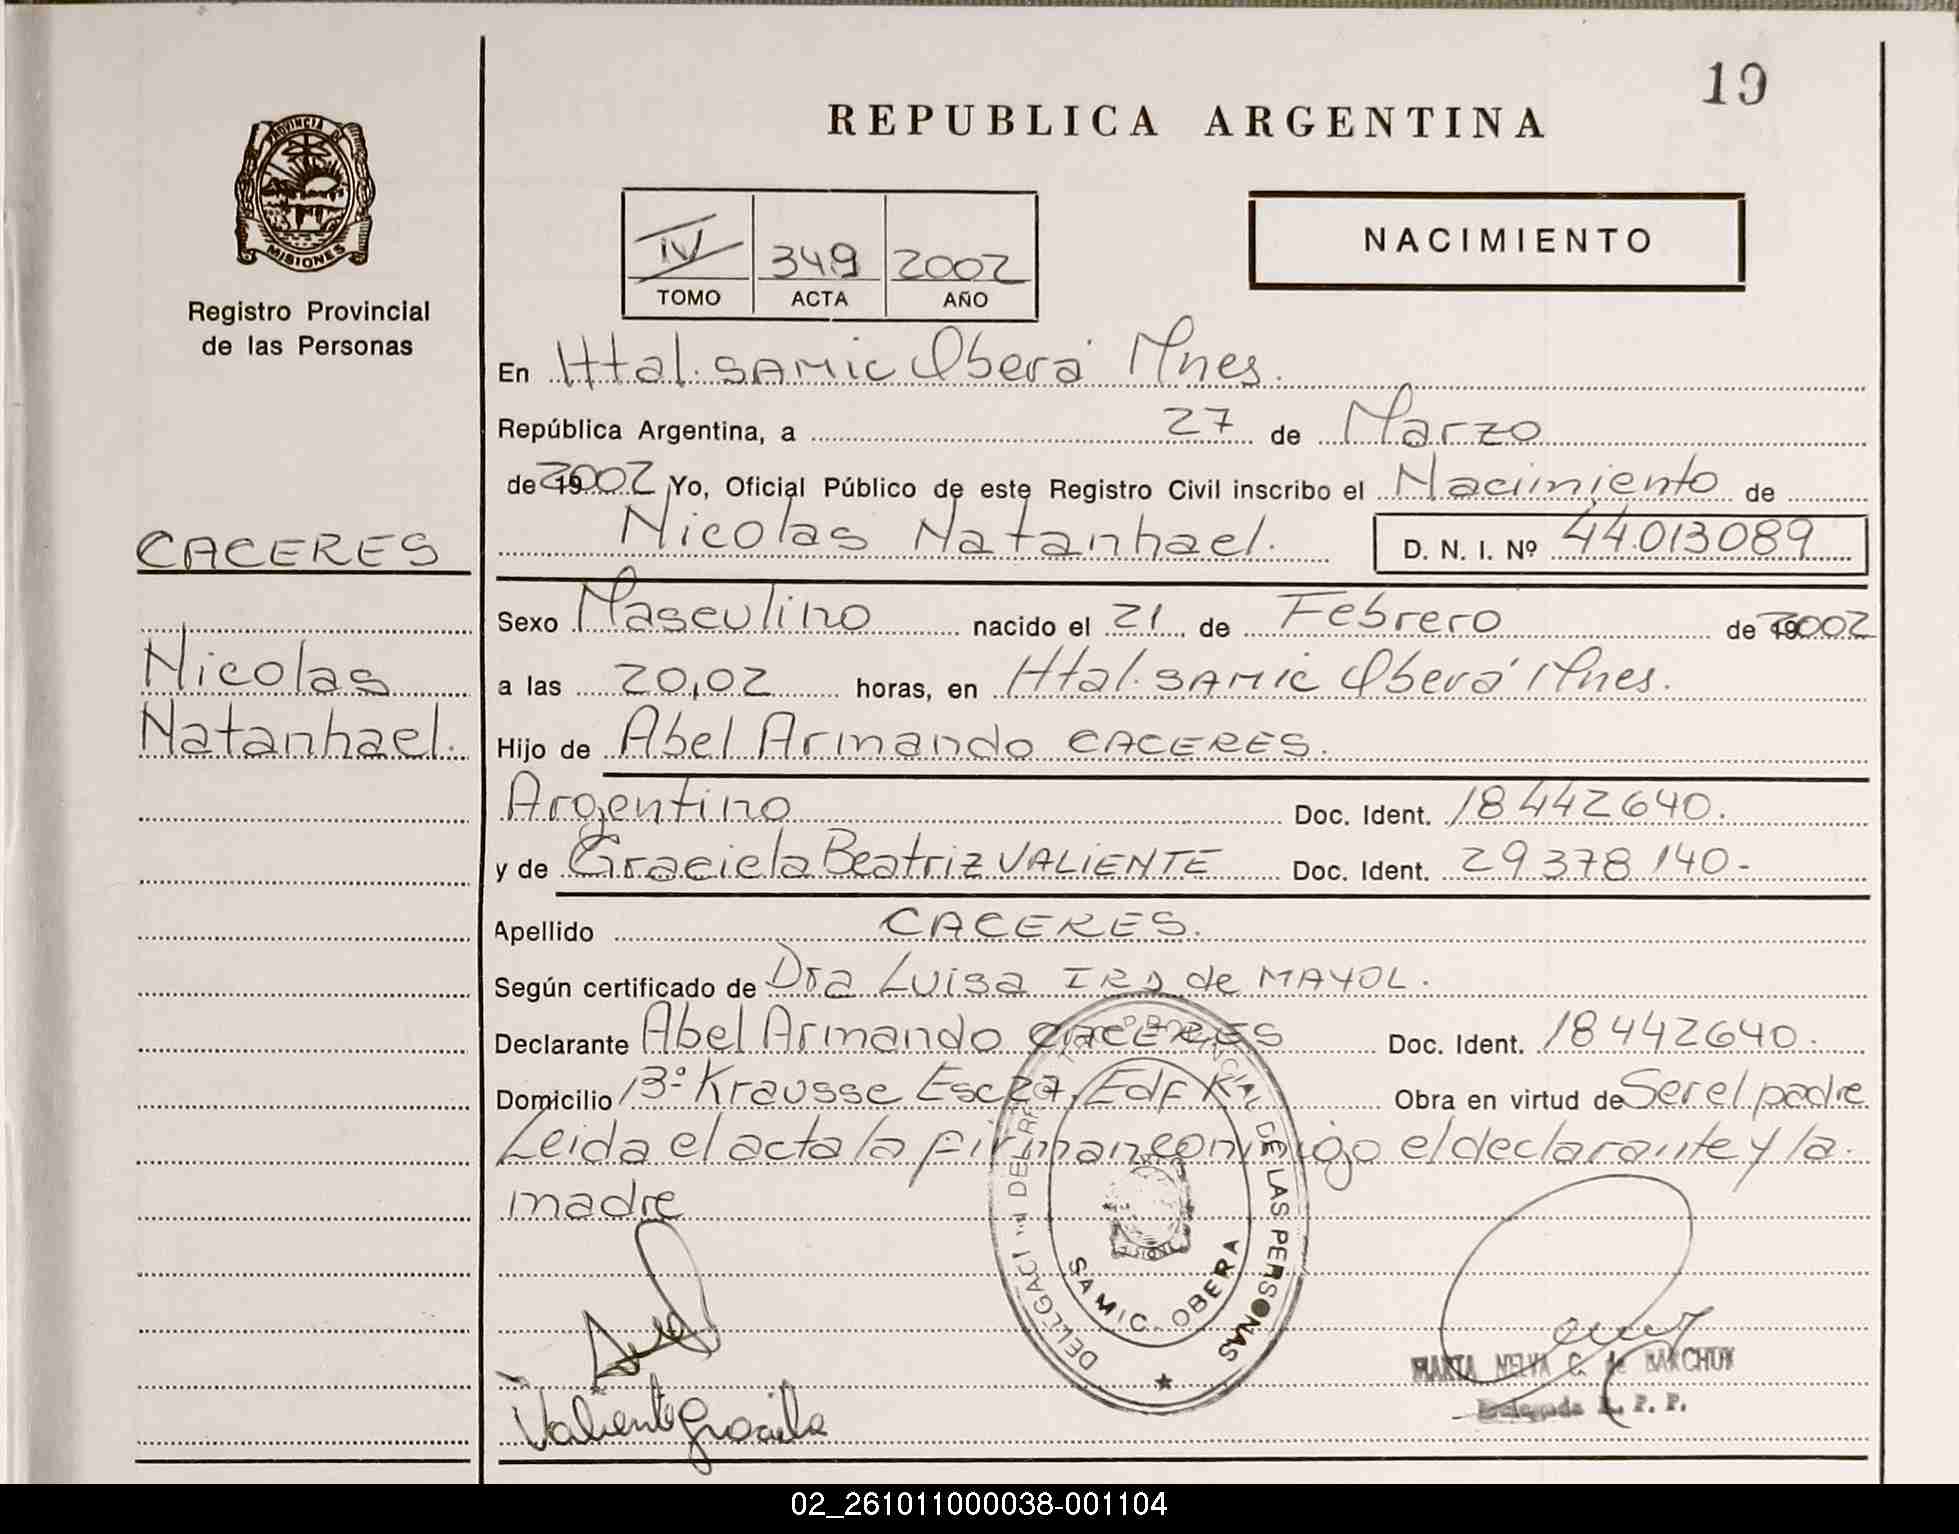 19
REPUBLICA ARGENTINA
PROVINCIA DE
MISIONES
Registro Provincial
de las Personas
IV 349 2002
TOMO ACTA AÑO
NACIMIENTO
En Htal. SAMIC Oberá Mnes.
República Argentina, a 27 de Marzo
de 2002 Yo, Oficial Público de este Registro Civil inscribo el Nacimiento de
Nicolas Natanhael. D. N. I. Nº 44.013089
CACERES
Nicolas
Natanhael.
Sexo Masculino nacido el 21 de Febrero de 2002
a las 20,02 horas, en Htal. SAMIC Oberá Mnes.
Hijo de Abel Armando CACERES.
Argentino Doc. Ident. 18442640.
y de Graciela Beatriz VALIENTE Doc. Ident. 29378140-
Apellido CACERES.
Según certificado de Dra Luisa de MAYOL.
Declarante Abel Armando CACERES Doc. Ident. 18442640.
Domicilio 13º Krausse Esc 27, Edf K Obra en virtud de Ser el padre
Leida el acta la firman conmigo el declarante y la
madre
DE LAS PERSONAS
SAMIC. OBERA
Valiente Graciela
MARTA NELVA C. de
R. P. P.
02_261011000038-001104